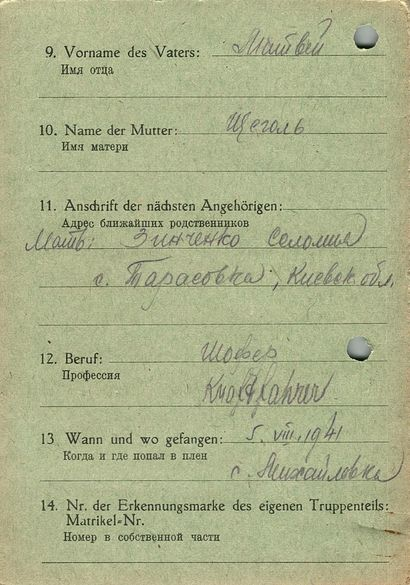 9. Vorname des Vaters: Матвей
Имя отца
10. Name der Mutter: Щеголь
Имя матери
11. Anschrift der nächsten Angehörigen:
Адрес ближайших родственников
Мать: Зинченко Соломия
с. Тарасовка, Киевск обл.
12. Beruf: Шофер
Профессия
Kraftfahrer
13. Wann und wo gefangen: 5. VIII. 1941
Когда и где попал в плен
с. Михайловка
14. Nr. der Erkennungsmarke des eigenen Truppenteils:
Matrikel-Nr.
Номер в собственной части